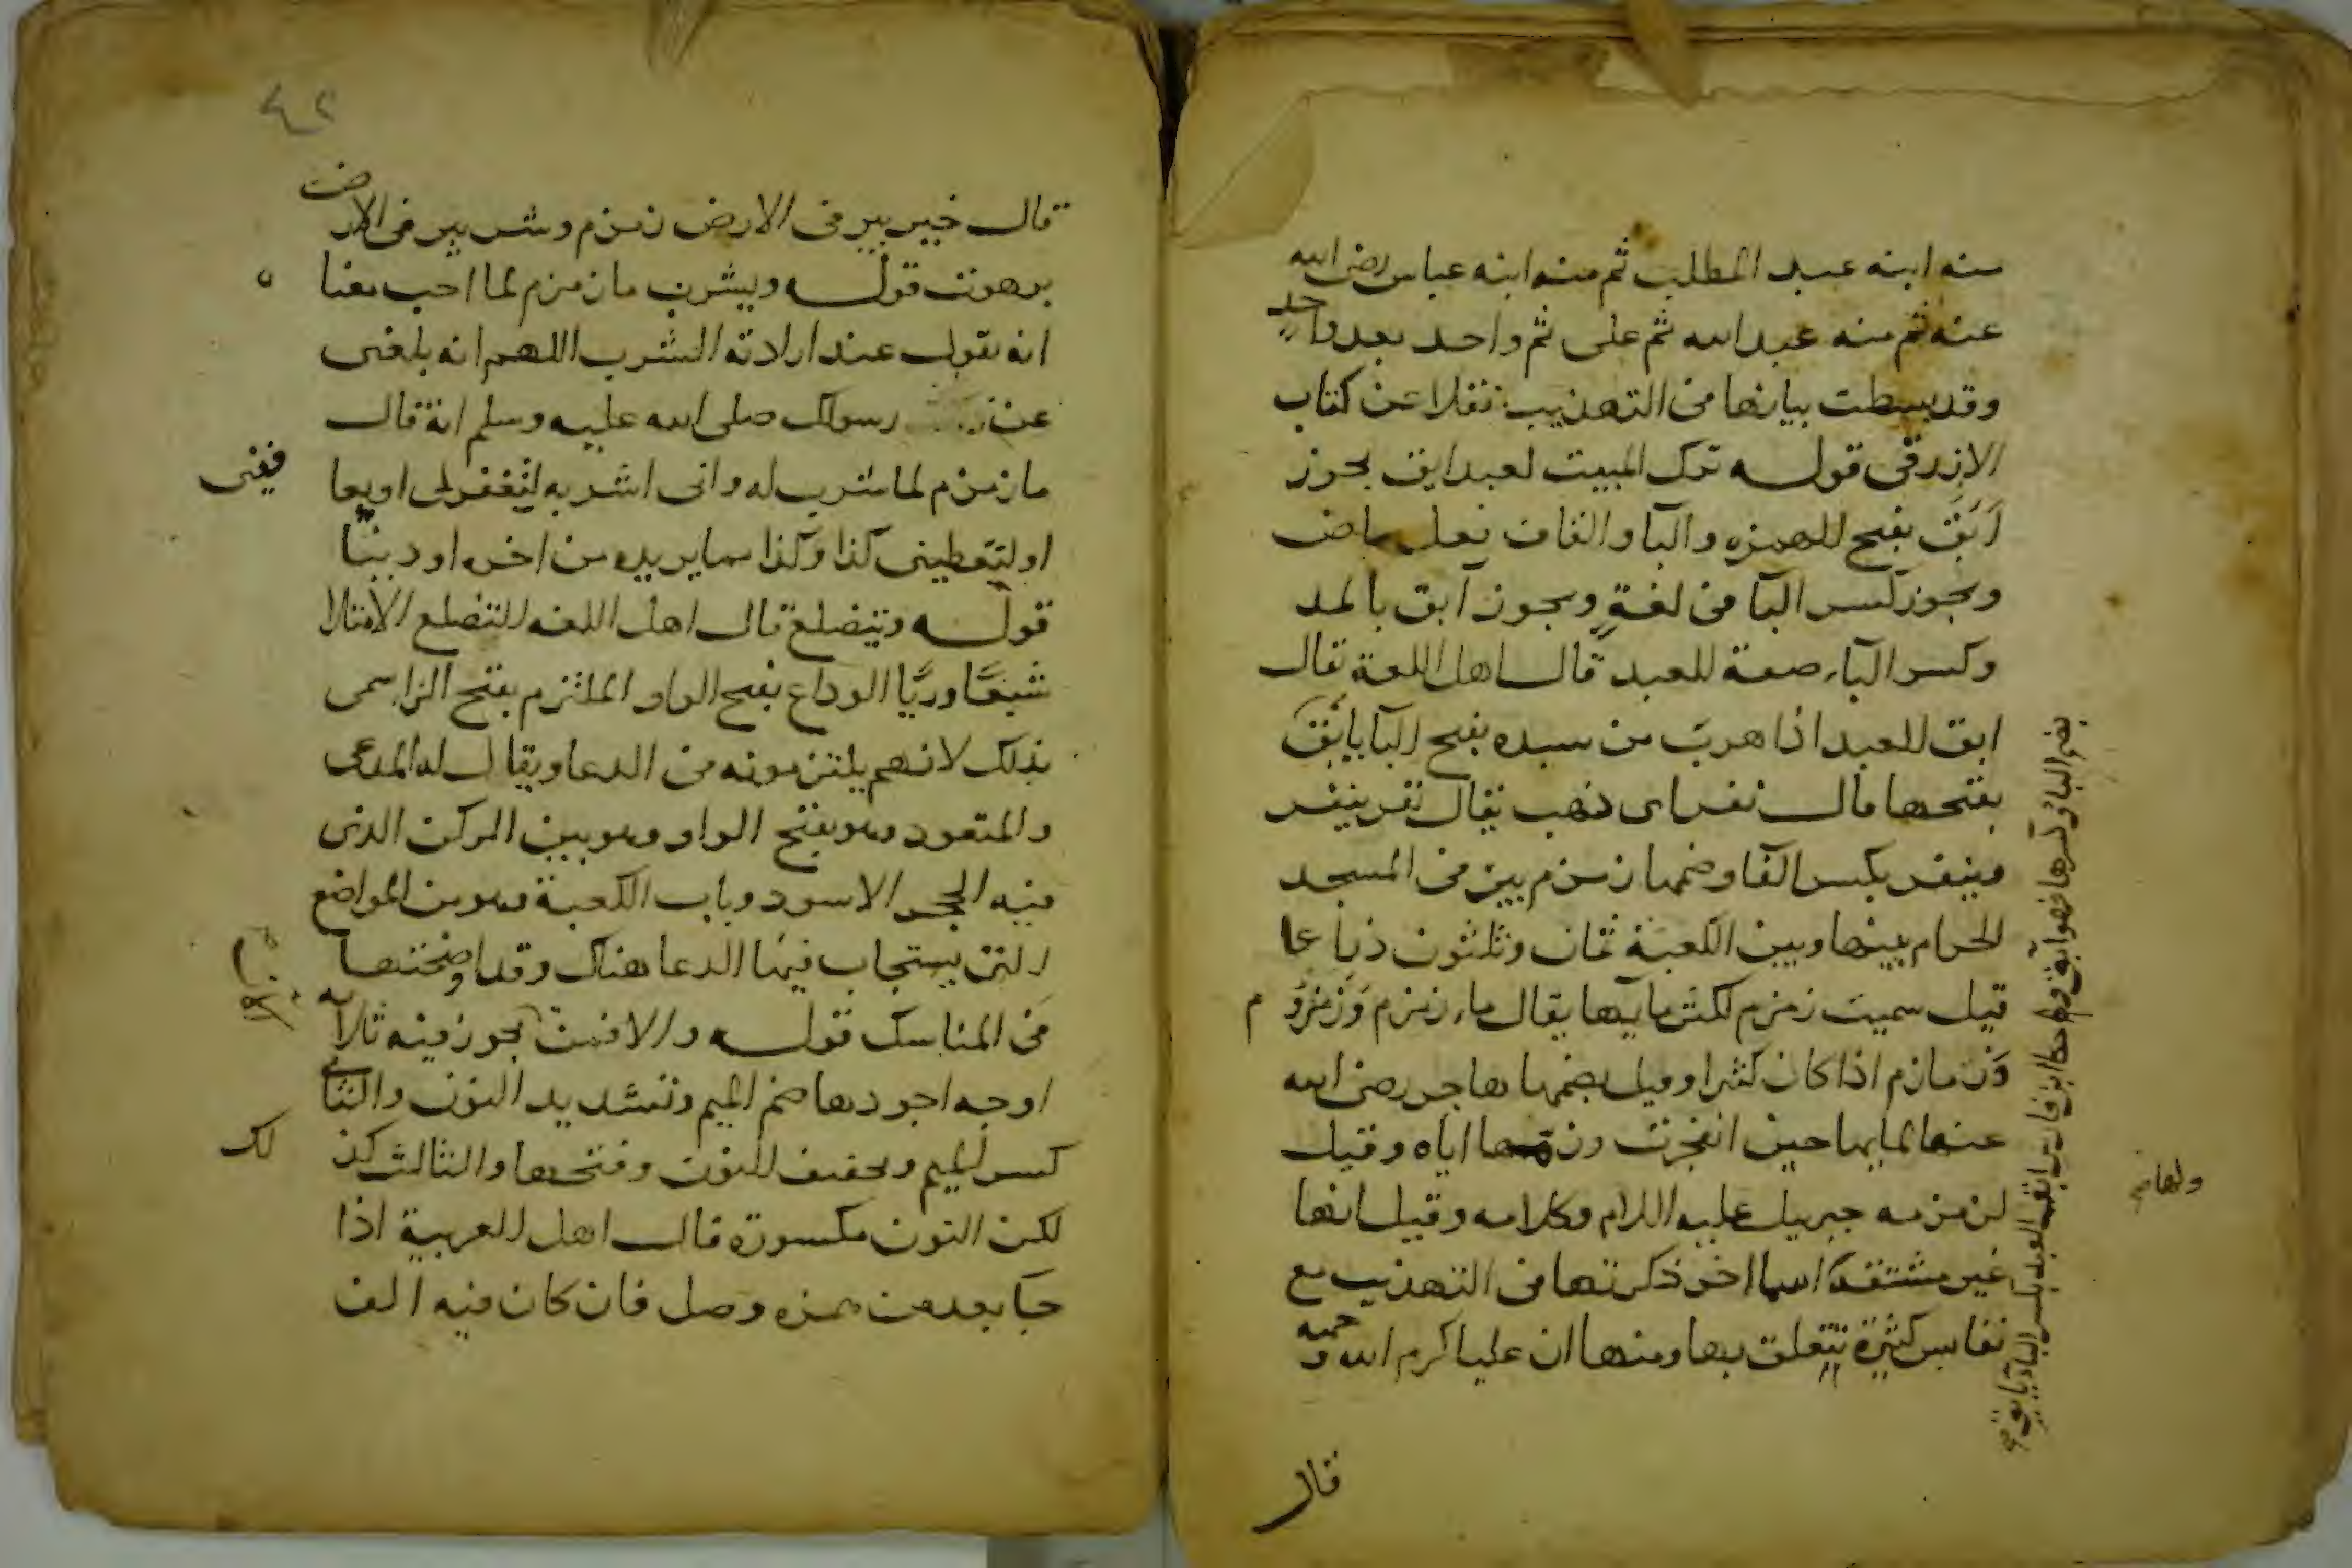 منه ابنه عبد المطلب ثم منه ابنه عباس رضى الله
عنه ثم منه عبد الله ثم على ثم واحد بعد واحد
وقد بسطت بيانها فى التهذيب نقلا عن كتاب
الازرقى قوله ترك المبيت لعبد ابق يجوز
اَبَقَ بفتح الهمزه والبا والقاف فعل ماض
ويجوز كسر البا فى لغة ويجوز آبق بالمد
وكسر الباء صفة للعبد قال اهل اللغة يقال
ابق العبد اذا هرب من سيده بفتح البا يابق
بضم البا وكسرها فهو آبق وحكا ابن فارس ابق العبد بكسر البا يابق
بفتحها قال نفر اى ذهب يقال نفر ينفر
وينفر بكسر الفا وضمها زمزم بير فى المسجد
الحرام بينها وبين الكعبة ثمان وثلثون ذراعا
قيل سميت زمزم لكثرة مايها يقال ماء زمزم وزمزوم
وزمازم اذا كان كثيرا وقيل لضمها هاجر رضى الله
عنها لمايها حين انفجرت وزمها اياه وقيل
لزمزمه جبريل عليه اللام وكلامه وقيل انها
غير مشتقة
ولها
اسما اخر ذكرتها فى التهذيب مع
نفايس كثيرة تتعلق بها ومنها ان عليا كرم الله وجهه
قال
٤٢
قال خير بير فى الارض زمزم وشر بير فى الارض
برهوت قوله ويشرب ما زمزم لما احب معنا ه
انه يقول عند ارادته الشرب اللهم انه بلغنى
عن رسولك صلى الله عليه وسلم انه قال
ما زمزم لما شرب له وانى اشربه لتغفر لى اويعا فينى
او لتعطينى كذا وكذا مما يريده من اخره او دينا
قوله ويتضلع قال اهل اللغه التضلع الامتلا
شبعًا وريًّا الوداع بفتح الواو الملتزم بفتح الزا سمى
بذلك لانهم يلتزمونه فى الدعا ويقال له المدعى
والمتعوذ وهو بفتح الواو وهو بين الركن الذى
فيه الحجر الاسود وباب الكعبة وهو من المواضع
التى يستجاب فيها الدعا هناك وقد اوضحتها
فى المناسك قوله والا فمن يجوز فيه ثلاثة
اوجه اجودها ضم الميم وتشديد النون والثانى
كسر الميم وتخفيف النون وفتحها والثالث كذلك
لكن النون مكسورة قال اهل العربية اذا
جا بعد من همزه وصل فان كان فيه الف